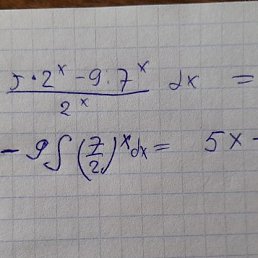 (5·2^x - 9·7^x)/2^x dx =
- 9∫(7/2)^x dx = 5x -